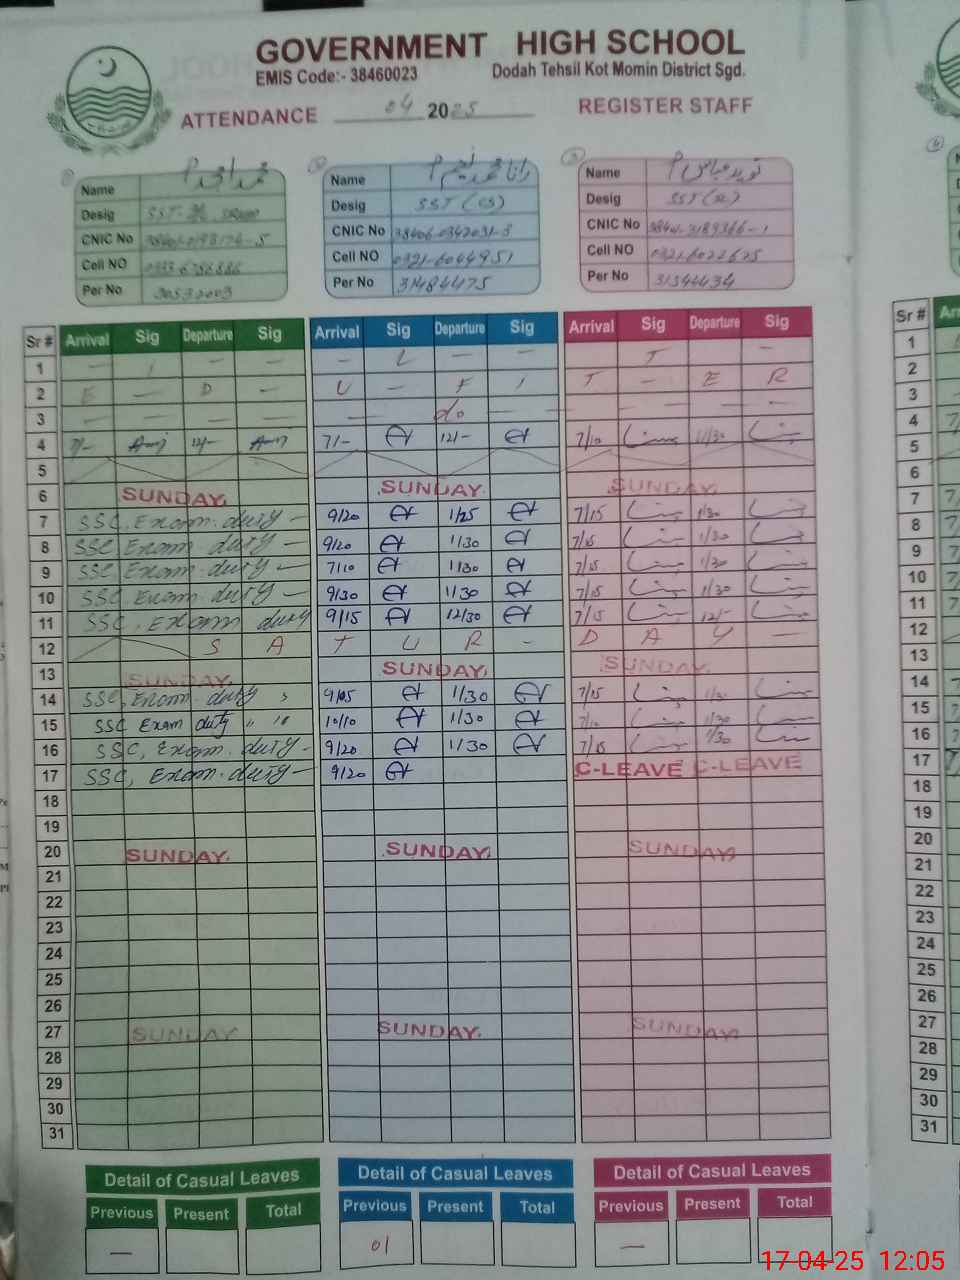 GOVERNMENT HIGH SCHOOL
EMIS Code:- 38460023 Dodah Tehsil Kot Momin District Sgd.
ATTENDANCE 04 2025 REGISTER STAFF
Name محمد امجد P
Desig SST
CNIC No
Cell NO
Per No
Name رانا محمد نعیم P
Desig SST (CS)
CNIC No 38406-0342031-3
Cell NO 0321-6044951
Per No 31484475
Name نوید عباس P
Desig SST
CNIC No 38401-3189366-1
Cell NO 0321-6022625
Per No 31344434
Sr # Arrival Sig Departure Sig Arrival Sig Departure Sig Arrival Sig Departure Sig Sr #
1 — — — — L — — T — 1
2 E — D — U — F T — E R 2
3 — — — — — do — — — — 3
4 7/- 12/- 7/- 12/- 7/10 11/30 4
5 5
6 SUNDAY. SUNDAY. SUNDAY. 6
7 SSC, Exam. duty — 9/20 1/25 7/15 1/30 7
8 SSC Exam duty — 9/20 1/30 7/15 1/30 8
9 SSC Exam. duty — 7/10 1/30 7/15 1/30 9
10 SSC, Exam. duty — 9/30 1/30 7/15 1/30 10
11 SSC, Exam duty 9/15 12/30 7/15 12/- 11
12 S A T U R - D A Y — 12
13 SUNDAY. SUNDAY. SUNDAY. 13
14 SSC, Exam. duty 9/05 1/30 7/15 1/30 14
15 SSC Exam duty " " 10/10 1/30 7/10 1/30 15
16 SSC, Exam. duty — 9/20 1/30 7/15 1/30 16
17 SSC, Exam. duty — 9/20 C-LEAVE C-LEAVE 17
18 18
19 19
20 SUNDAY. SUNDAY. SUNDAY. 20
21 21
22 22
23 23
24 24
25 25
26 26
27 SUNDAY SUNDAY. SUNDAY. 27
28 28
29 29
30 30
31 31
Detail of Casual Leaves Detail of Casual Leaves Detail of Casual Leaves
Previous Present Total Previous Present Total Previous Present Total
— 01 —
17-04-25 12:05